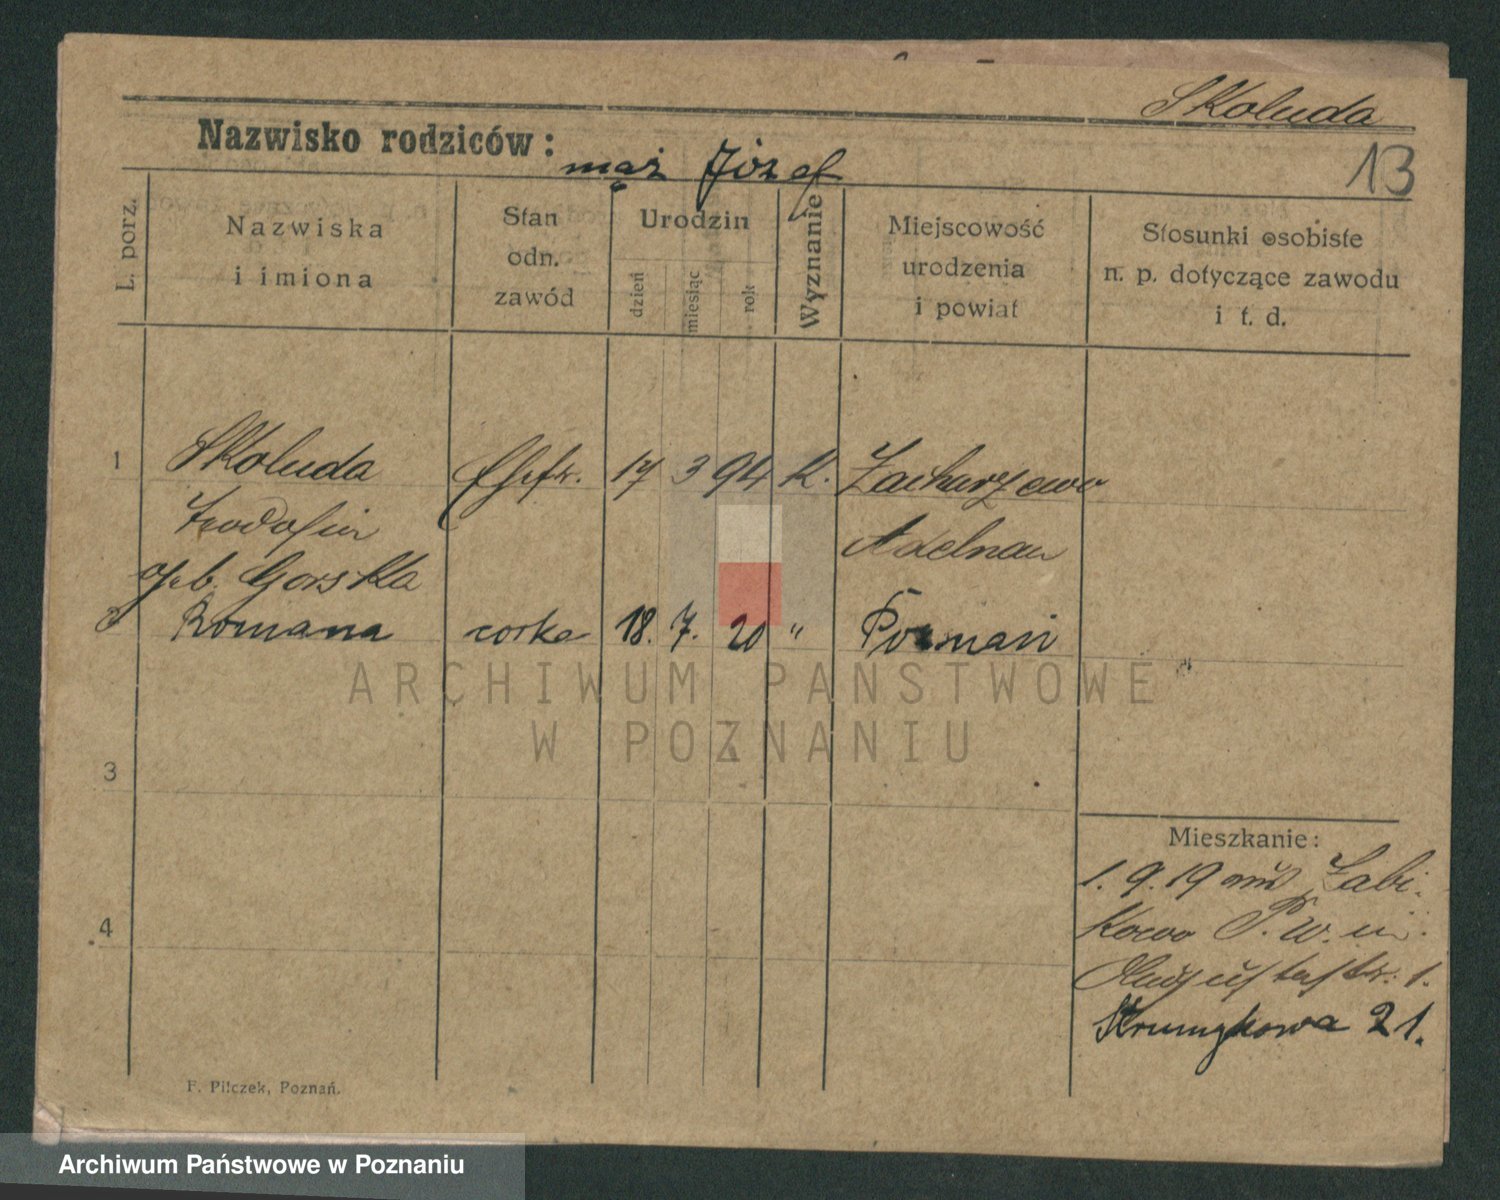 Skoluda
Nazwisko rodziców: mąż Józef
13
L. porz.
Nazwiska
i imiona
Stan
odn.
zawód
Urodzin
dzień
miesiąc
rok
Wyznanie
Miejscowość
urodzenia
i powiat
Stosunki osobiste
n. p. dotyczące zawodu
i t. d.
1 Skoluda Ehefr. 17 3 94 K. Zacharzewo
Teodosia Adelnau
geb. Gorska
2 Romana corka 18. 7. 20 " Poznań
ARCHIWUM PAŃSTWOWE
W POZNANIU
3
4
Mieszkanie:
1. 9. 19 aus Zabi-
kowo P. W. in
Augustastr. 1.
Strumykowa 21.
F. Pilczek, Poznań.
Archiwum Państwowe w Poznaniu